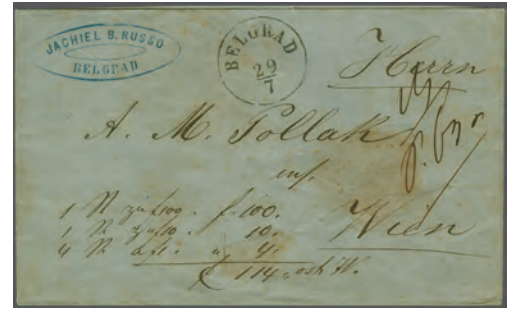 JACHIEL B. RUSSO
BELGRAD
BELGRAD
29
7
Herrn
A. M. Pollak
in
Wien
1 N zu f 100. f. 100.
1 N zu f 10. 10.
4 N a f 1. 4.
f 114.